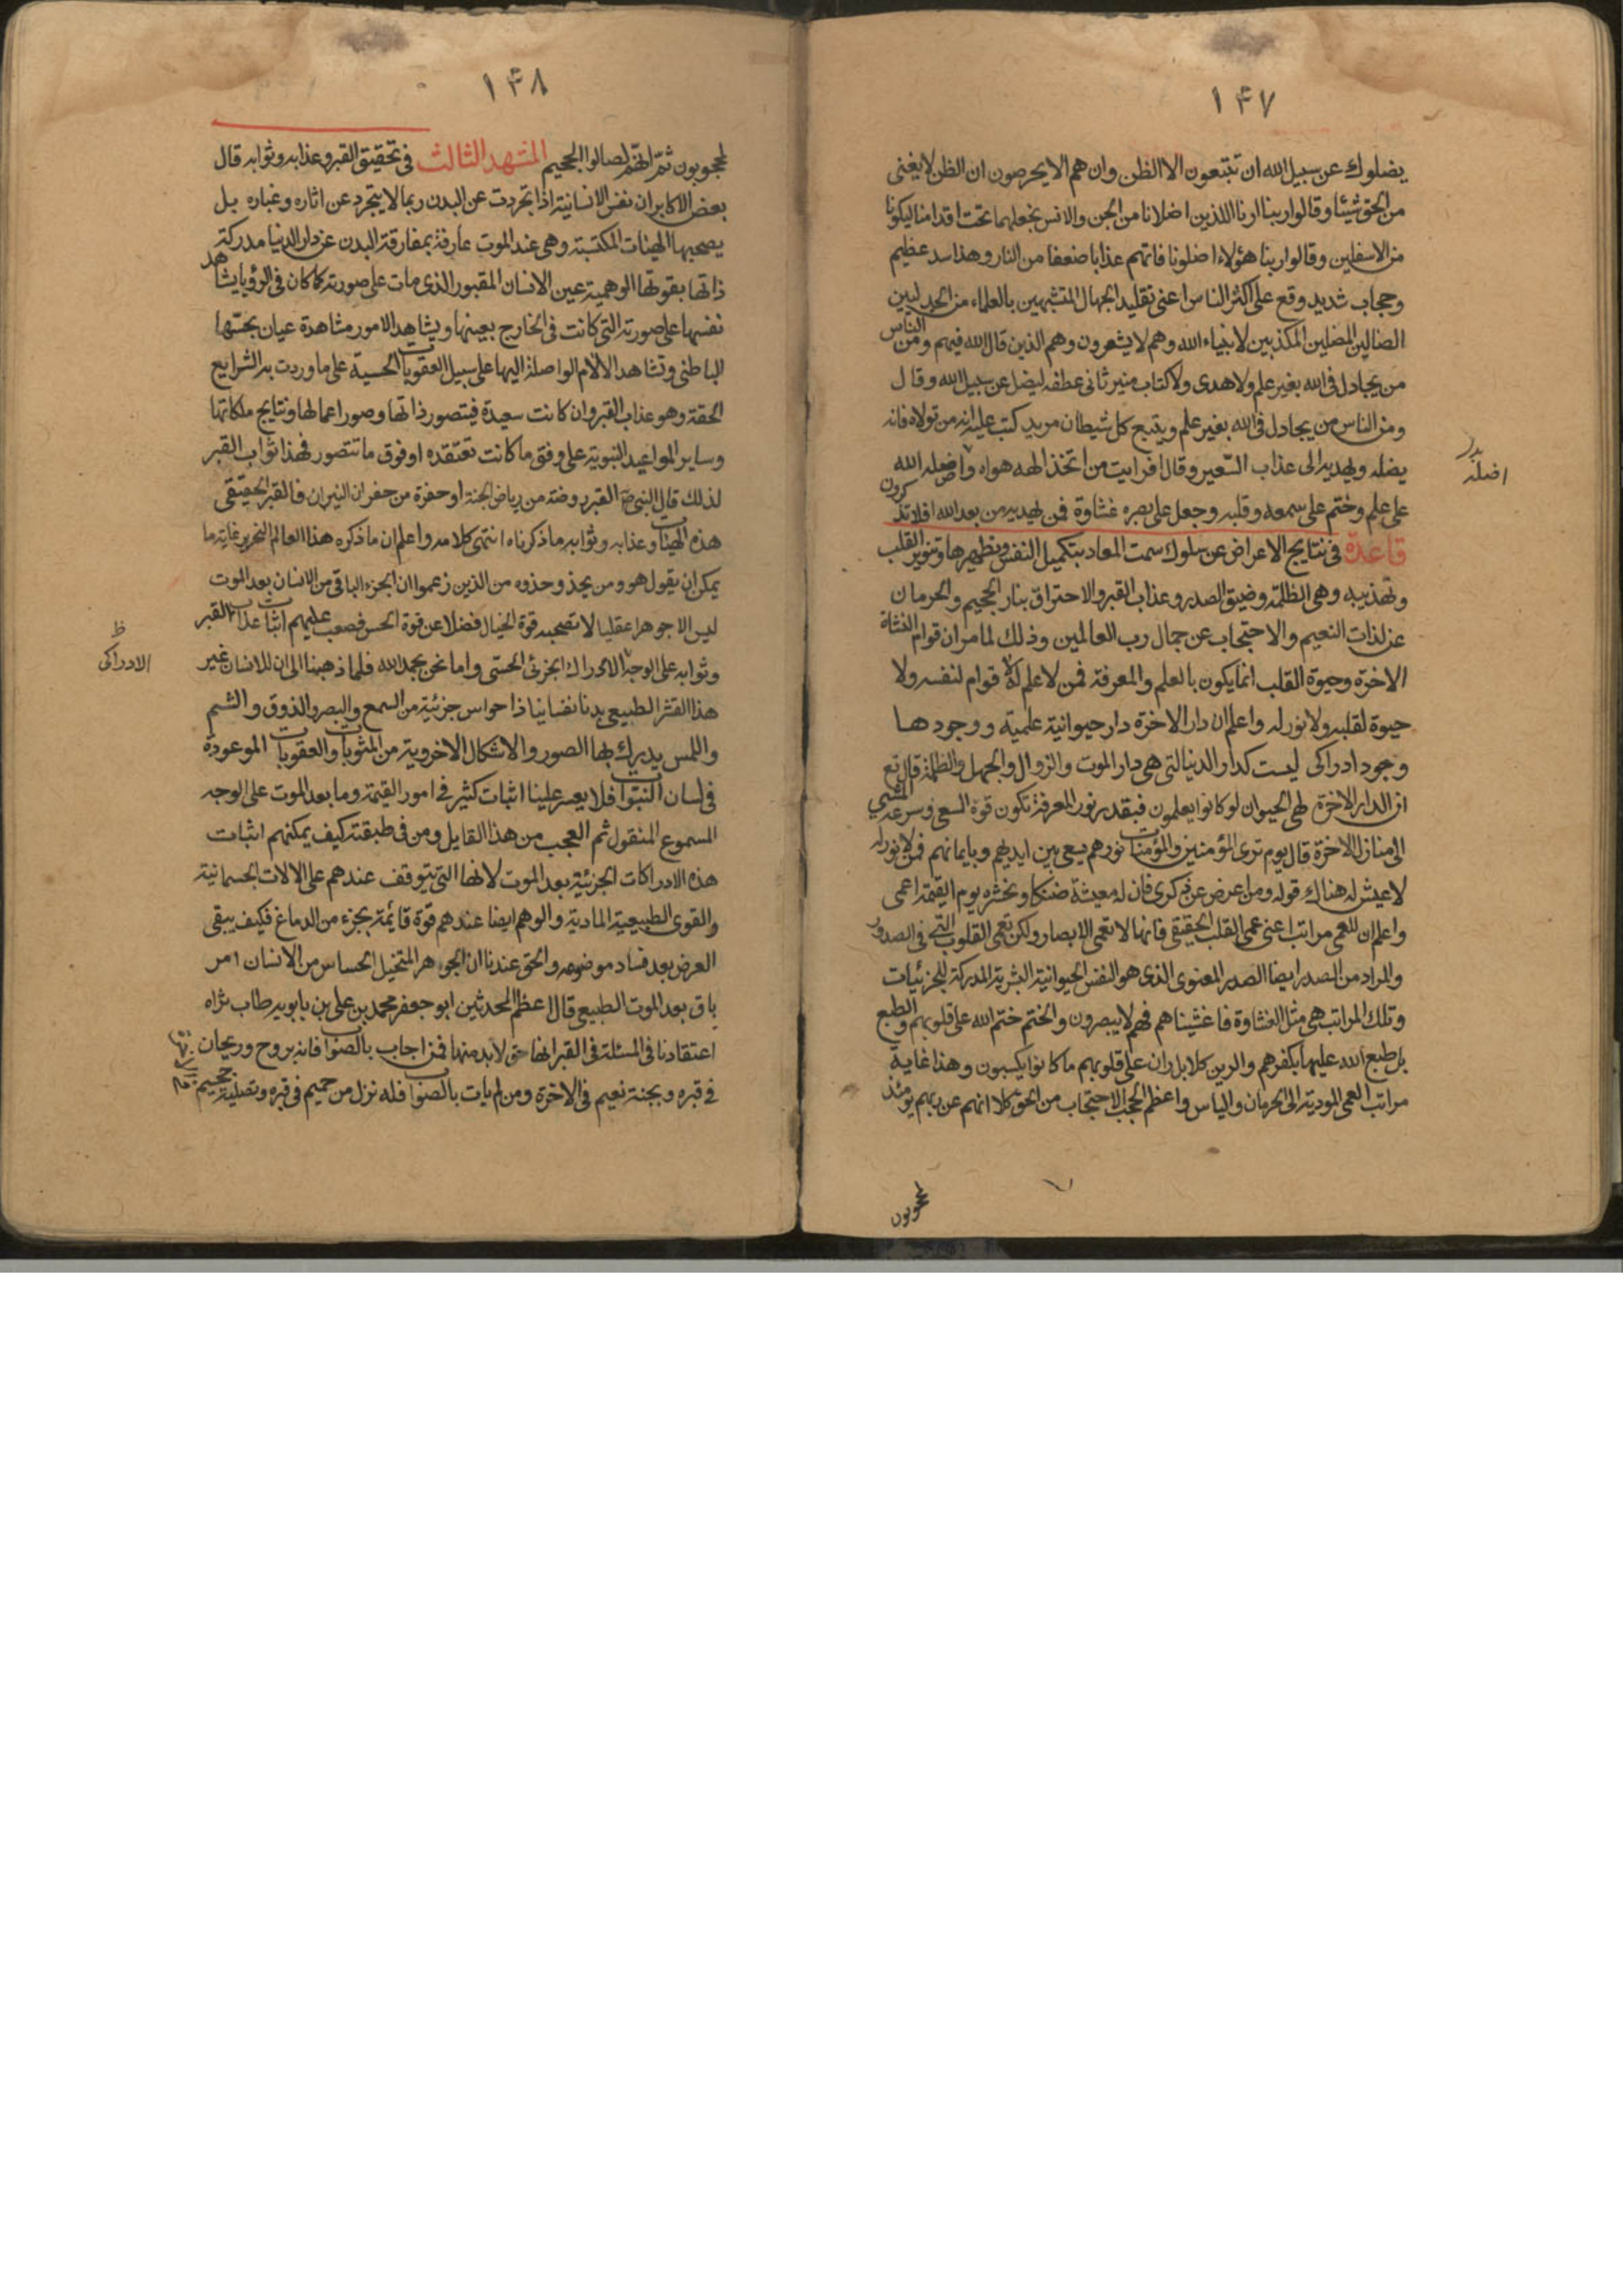 ١۴٧
يضلوك عن سبيل الله ان تتبعون الا الظن وان هم الا يخرصون ان الظن لا يغنى
من الحق شيئا وقالوا ربنا ارنا اللذين اضلانا من الجن والانس نجعلهما تحت اقدامنا ليكونا
من الاسفلين وقالوا ربنا هؤلاء اضلونا فاتهم عذابا ضعفا من النار وهذا سد عظيم
وحجاب شديد وقع على اكثر الناس اعنى تقليد الجهال المتشبهين بالعلماء من الجدليين
الضالين المضلين المكذبين لانبياء الله وهم لا يشعرون وهم الذين قال الله فيهم ومن الناس
من يجادل فى الله بغير علم ولا هدى ولا كتاب منير ثانى عطفه ليضل عن سبيل الله وقال
ومن الناس من يجادل فى الله بغير علم ويتبع كل شيطان مريد كتب عليه انه من تولاه فانه
يضله ويهديه الى عذاب السعير وقال افرايت من اتخذ الهه هواه واضله الله
على علم وختم على سمعه وقلبه وجعل على بصره غشاوة فمن يهديه من بعد الله افلا تذكرون
قاعدة فى نتايج الاعراض عن سلوك سمت المعاد بتكميل النفس وتطهيرها وتنوير القلب
وتهذيبه وهى الظلمة وضيق الصدر وعذاب القبر والاحتراق بنار الجحيم والحرمان
عن لذات النعيم والاحتجاب عن جمال رب العالمين وذلك لما مر ان قوام النشاة
الاخرة وحيوة القلب انما يكون بالعلم والمعرفة فمن لا علم له لا قوام لنفسه ولا
حيوة لقلبه ولا نور له واعلم ان دار الاخرة دار حيوانية علمية ووجودها
وجود ادراكى ليست كدار الدنيا التى هى دار الموت والزوال والجهل والظلمة قال تع
ان الدار الاخرة لهى الحيوان لو كانوا يعلمون فبقدر نور المعرفة تكون قوة السعى وسرعة المشى
الى منازل الاخرة قال يوم ترى المؤمنين والمؤمنات نورهم يسعى بين ايديهم وبايمانهم فمن لا نور له
لا عيش له هناك قوله ومن اعرض عن ذكرى فان له معيشة ضنكا ونحشره يوم القيمة اعمى
واعلم ان للعمى مراتب اعنى عمى القلب الحقيقى فانها لا تعمى الابصار ولكن تعمى القلوب التى فى الصدور
والمراد من الصدر ايضا الصدر المعنوى الذى هو النفس الحيوانية البشرية المدركة للجزئيات
وتلك المراتب هى مثل الغشاوة فاغشيناهم فهم لا يبصرون والختم ختم الله على قلوبهم والطبع
بل طبع الله عليها بكفرهم والرين كلا بل ران على قلوبهم ما كانوا يكسبون وهذا غاية
مراتب العمى المودية الى الحرمان والياس واعظم الحجب الاحتجاب من الحق كلا انهم عن ربهم يومئذ
لمحجوبون
اضله
١۴٨
لمحجوبون ثم انهم لصالوا الجحيم المشهد الثالث فى تحقيق القبر وعذابه وثوابه قال
بعض الاكابر ان نفس الانسانية اذا تجردت عن البدن ربما لا يتجرد عن اثاره وغباره بل
يصحبها الهيئات المكتسبة وهى عند الموت عارفة بمفارقة البدن عن دار الدنيا مدركة
ذاتها بقوتها الوهمية عين الانسان المقبور الذى مات على صورته كما كان فى الرؤيا يشاهد
نفسها على صورته التى كانت فى الخارج بعينها ويشاهد الامور مشاهدة عيان بحسها
الباطنى وتشاهد الالام الواصلة اليها على سبيل العقوبات الحسية على ما وردت به الشرايع
الحقة وهو عذاب القبر وان كانت سعيدة فيتصور ذاتها وصور اعمالها ونتايج ملكاتها
وساير المواعيد النبوية على وفق ما كانت تعتقده او فوق ما تتصور فهذا ثواب القبر
لذلك قال النبى ص القبر روضة من رياض الجنة او حفرة من حفر ان النيران فالقبر الحقيقى
هذه الهيئات وعذابه وثوابه ما ذكرناه انتهى كلامه واعلم ان ما ذكره هذا العالم النحرير غاية ما
يمكن ان يقول هو ومن يحذو حذوه من الذين زعموا ان الجزء الباقى من الانسان بعد الموت
ليس الا جوهرا عقليا لا تصحبه قوة الخيال فضلا عن قوة الحس فصعب عليهم اثبات عذاب القبر
وثوابه على الوجه الادراك الجزئى الحسى واما نحن بحمد الله فلما ذهبنا الى ان للانسان غير
هذا القشر الطبيعى بدنا نفسانيا ذا حواس جزئية من السمع والبصر والذوق والشم
واللمس يدرك بها الصور والاشكال الاخروية من المثوبات والعقوبات الموعودة
فى لسان النبوات فلا يعسر علينا اثبات كثير فى امور القيمة وما بعد الموت على الوجه
المسموع المنقول ثم العجب من هذا القايل ومن فى طبقته كيف يمكنهم اثبات
هذه الادراكات الجزئية بعد الموت لانها التى يتوقف عندهم على الالات الجسمانية
والقوى الطبيعية المادية والوهم ايضا عندهم قوة قائمة بجزء من الدماغ فكيف يبقى
العرض بعد فساد موضوعه والحق عندنا ان الجوهر المتخيل الحساس من الانسان امر
باق بعد الموت الطبيعى قال اعظم المحدثين ابو جعفر محمد بن على بن بابويه طاب ثراه
اعتقادنا فى المسئلة فى القبر انها حق لا بد منها فمن اجاب بالصواب فانه بروح وريحان
فى قبره وبجنة نعيم فى الاخرة ومن لم يات بالصواب فله نزل من حميم فى قبره وتصلية جحيم
ظ
الادراكى